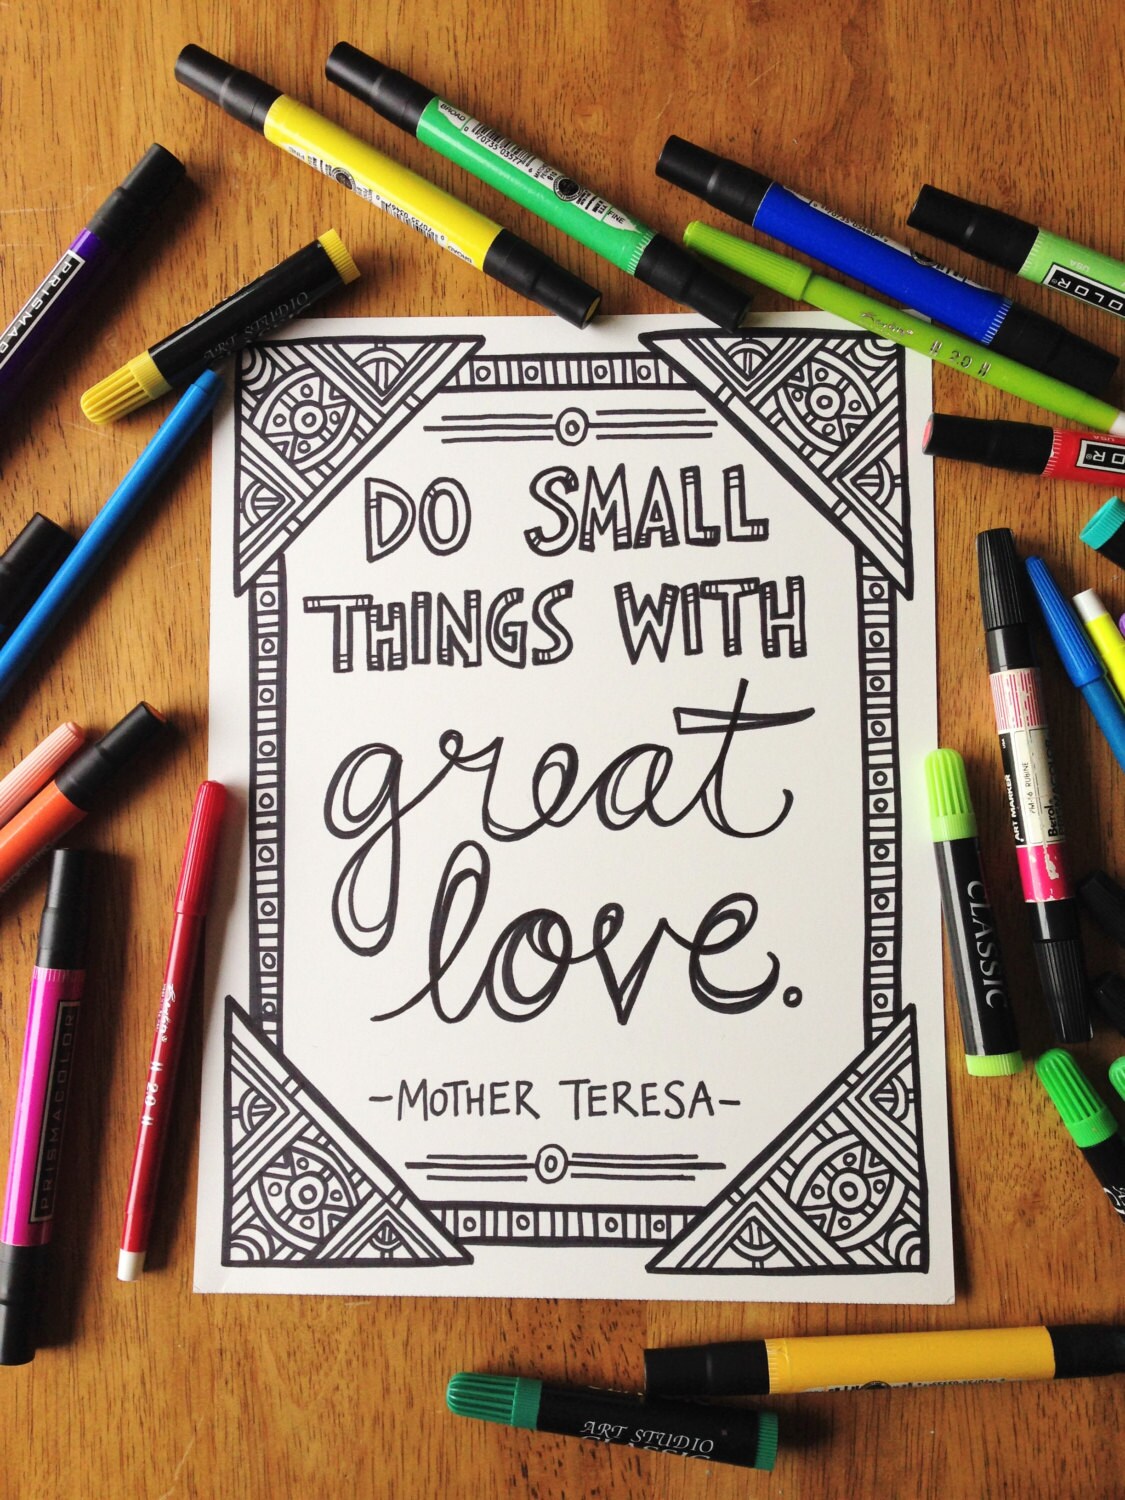 BROAD
FINE
PRISMAC
ART STUDIO
COLOR
USA
OR
USA
DO SMALL
THINGS WITH
great
love.
-MOTHER TERESA-
ART MARKER
Berol
CLASSIC
PRISMACOLOR
ART STUDIO
CLASSIC